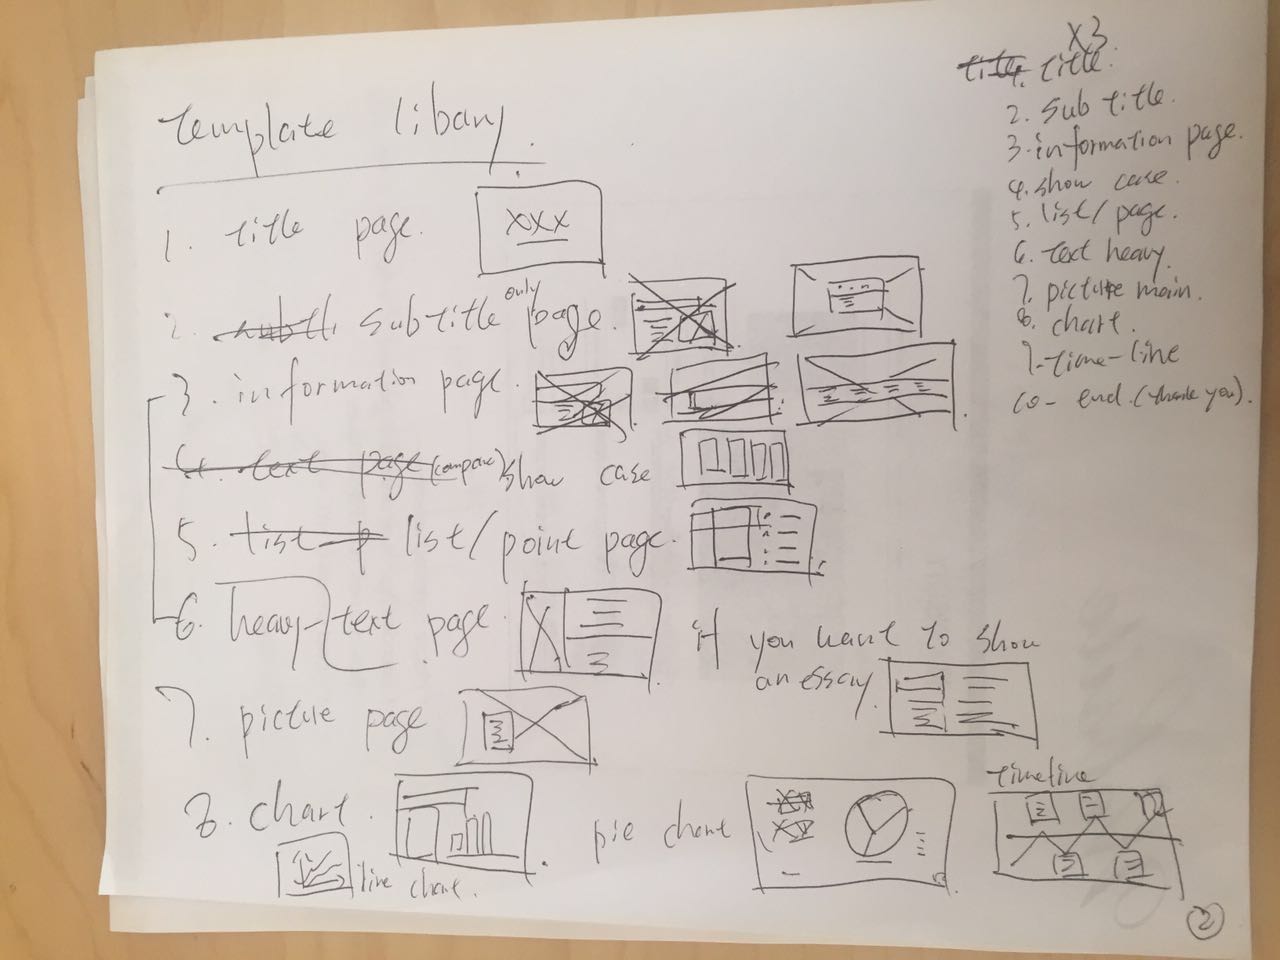 template libary.
1. title page.
XXX
2. subtitle only page.
3. information page.
4. text page (compare) show case
5. list p list/point page.
6. heavy-text page.
if you want to show
an essay.
7. picture page
8. chart.
line chart.
pie chart
timeline
X3
title 1. title.
2. sub title.
3. information page.
4. show case.
5. list/page.
6. text heavy.
7. picture main.
8. chart.
9. time-line
10- end. (thank you).
2